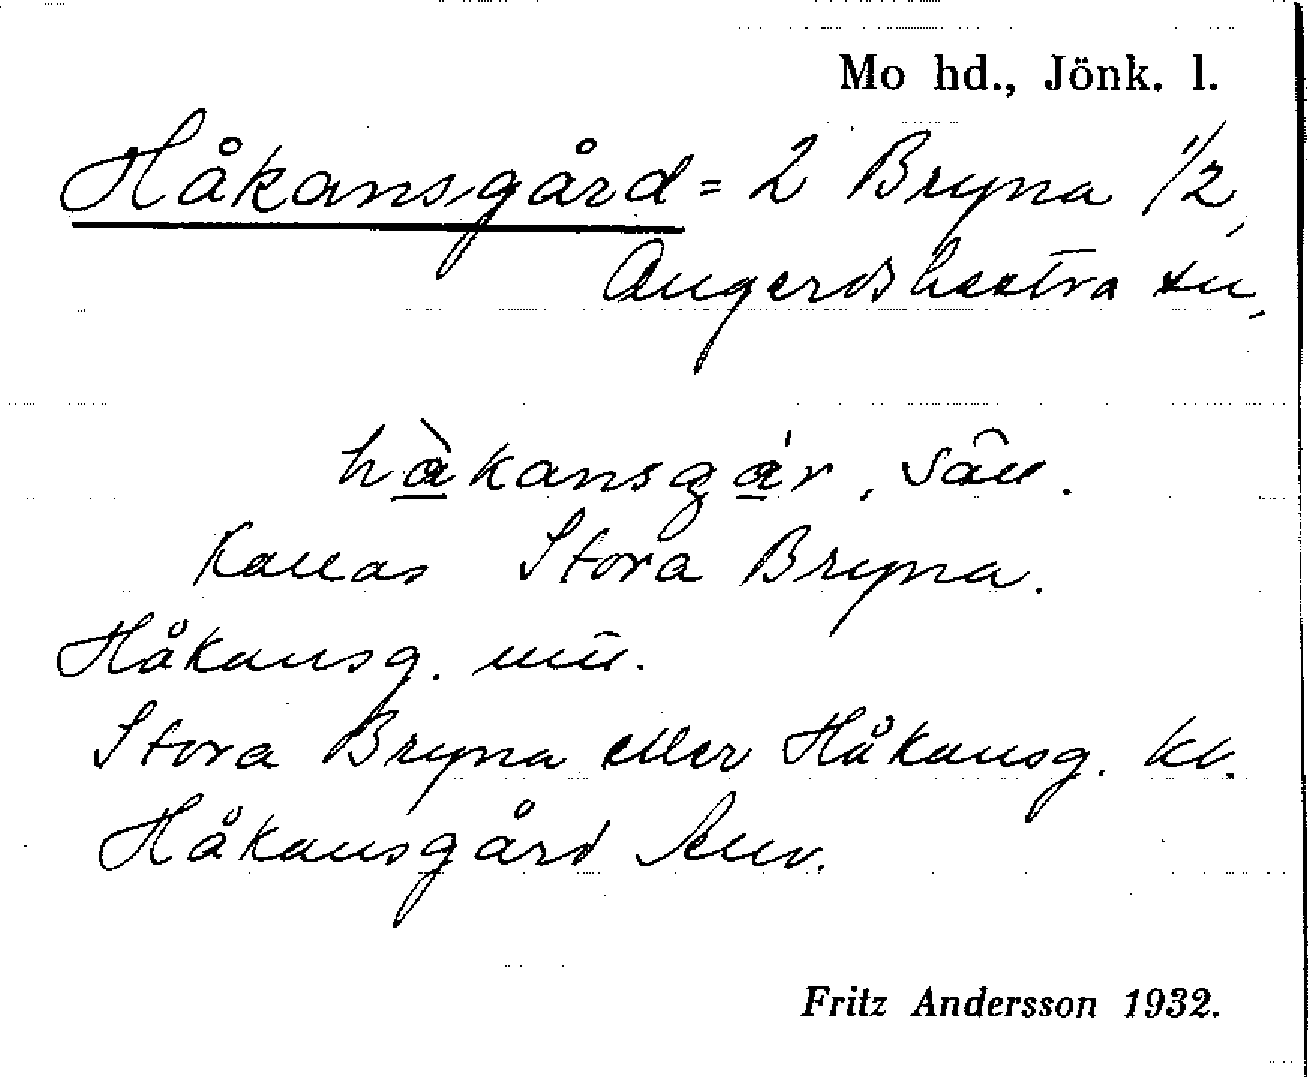 Mo hd., Jönk. l.
Håkansgård = 2 Bryna 1/2,
Angerdshestra sn,
hàkansgár, sän.
Kallas Stora Bryna.
Håkansg. mū.
Stora Bryna eller Håkansg. kv.
Håkansgård Anv.
Fritz Andersson 1932.